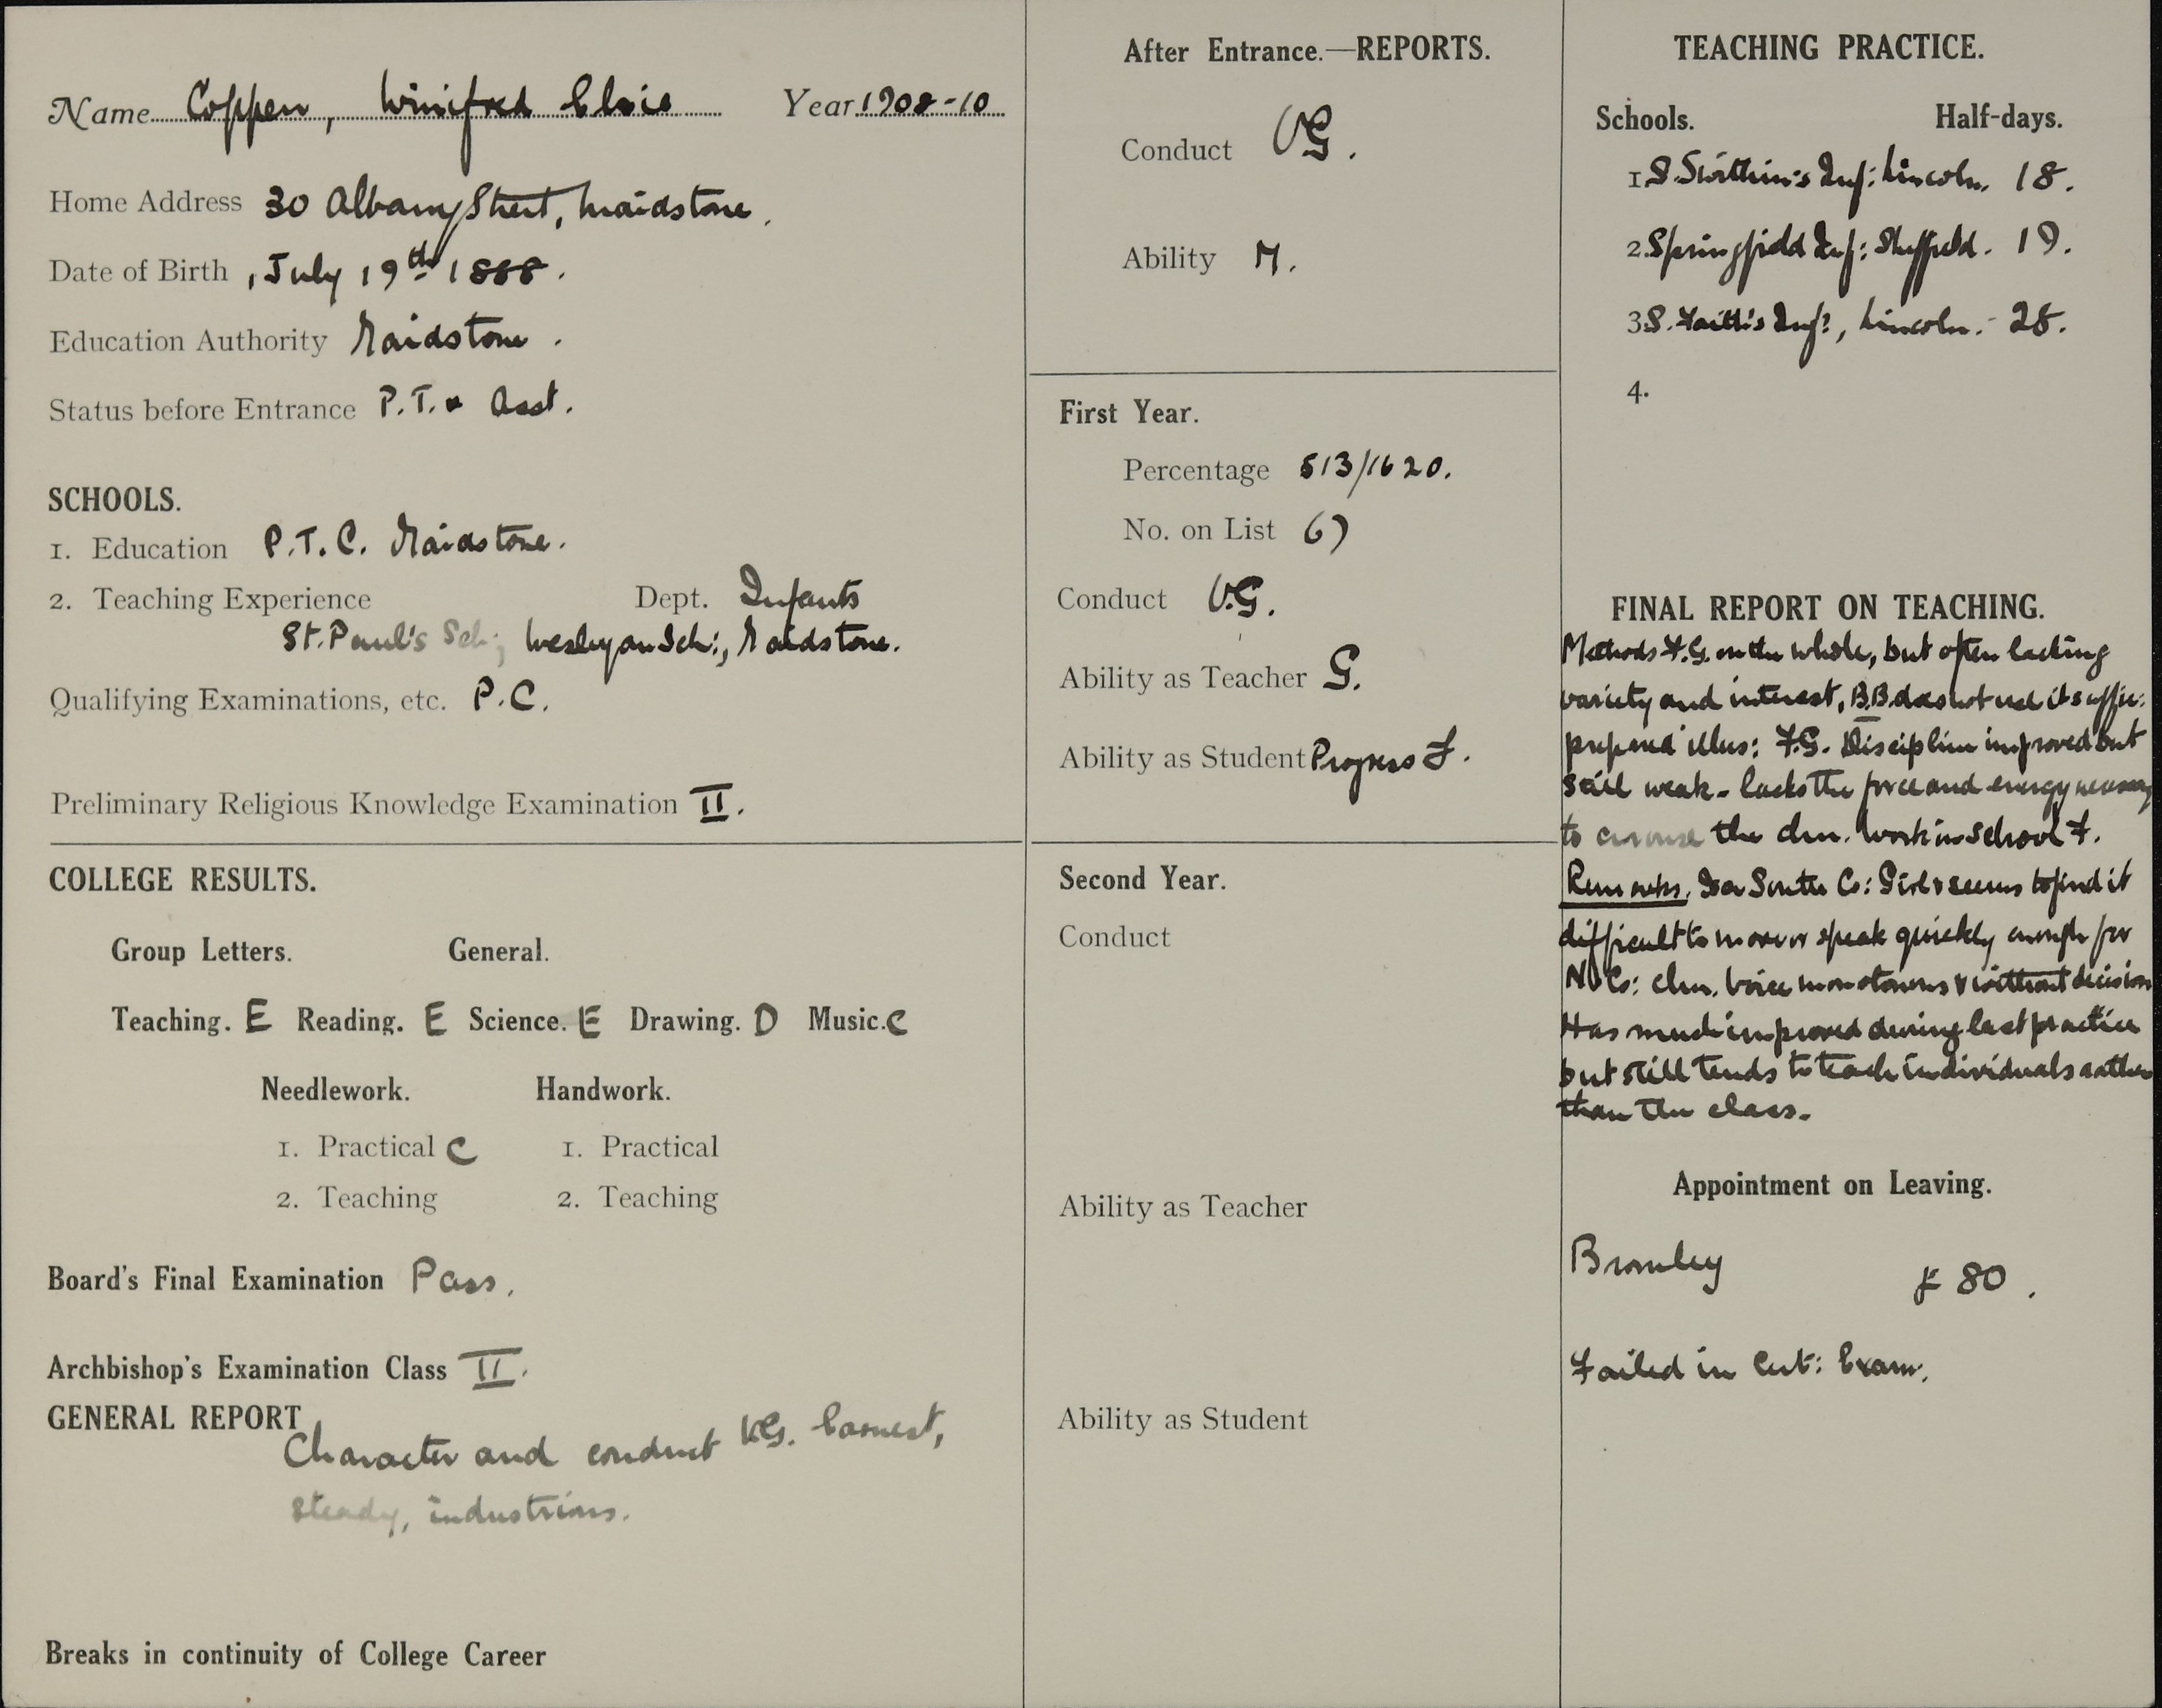 Name Coppen, Winifred Elsie Year 1908-10
Home Address 30 Albany Street, Maidstone.
Date of Birth, July 19th 1888.
Education Authority Maidstone.
Status before Entrance P.T. & Asst.
SCHOOLS.
1. Education P.T.C. Maidstone.
2. Teaching Experience Dept. Infants
St. Paul's Sch:, Wesleyan Sch:, Maidstone.
Qualifying Examinations, etc. P.C.
Preliminary Religious Knowledge Examination II.
COLLEGE RESULTS.
Group Letters. General.
Teaching. E Reading. E Science. E Drawing. D Music. C
Needlework. Handwork.
1. Practical C 1. Practical
2. Teaching 2. Teaching
Board's Final Examination Pass.
Archbishop's Examination Class II.
GENERAL REPORT
Character and conduct V.G. Earnest,
steady, industrious.
Breaks in continuity of College Career
After Entrance.—REPORTS.
Conduct VG.
Ability M.
First Year.
Percentage 513/1620.
No. on List 67
Conduct V.G.
Ability as Teacher G.
Ability as Student Progress F.
Second Year.
Conduct
Ability as Teacher
Ability as Student
TEACHING PRACTICE.
Schools. Half-days.
1. S. Swithin's Inf: Lincoln. 18.
2. Springfield Inf: Sheffield. 19.
3. S. Faith's Inf:, Lincoln. - 28.
4.
FINAL REPORT ON TEACHING.
Methods F.G. on the whole, but often lacking
variety and interest, B.B. does not use it suffic:
prepared illus: F.G. Discipline improved but
still weak - lacks the force and energy necessary
to arouse the chn. Work in School F.
Remarks. Is a South Co: Girl & seems to find it
difficult to move or speak quickly enough for
N. Co: chn. Voice monotonous & without decision
Has much improved during last practice
but still tends to teach individuals rather
than the class.
Appointment on Leaving.
Bromley £80.
Failed in Cert: Exam: